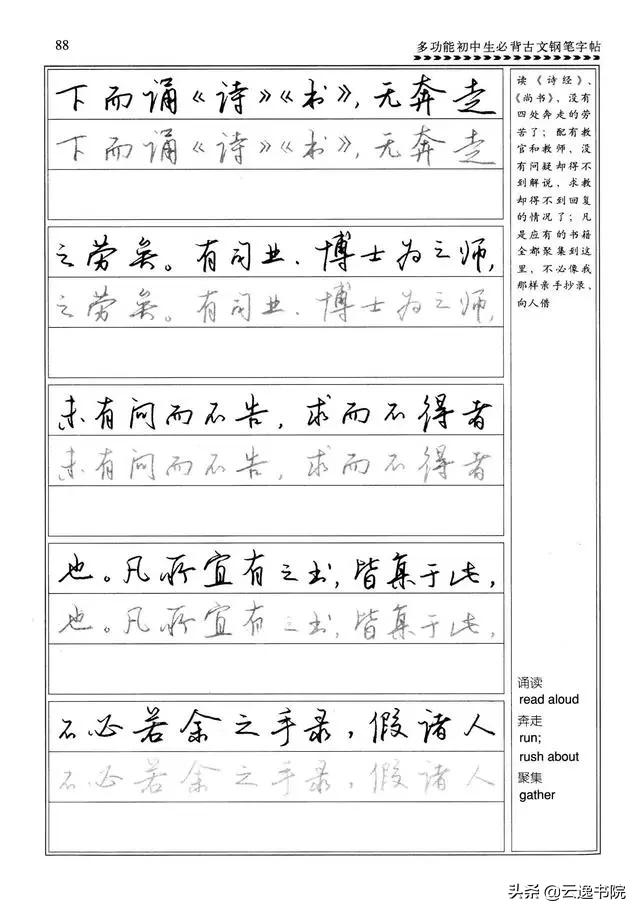 88
多功能初中生必背古文钢笔字帖
下而诵《诗》《书》，无奔走
下而诵《诗》《书》，无奔走
之劳矣。有司业、博士为之师，
之劳矣。有司业、博士为之师，
未有问而不告，求而不得者
未有问而不告，求而不得者
也。凡所宜有之书，皆集于此，
也。凡所宜有之书，皆集于此，
不必若余之手录，假诸人
不必若余之手录，假诸人
读《诗经》、
《尚书》，没有
四处奔走的劳
苦了；配有教
官和教师，没
有问疑却得不
到解说，求教
却得不到回复
的情况了；凡
是应有的书籍
全都聚集到这
里，不必像我
那样亲手抄录、
向人借
诵读
read aloud
奔走
run;
rush about
聚集
gather
头条@云逸书院